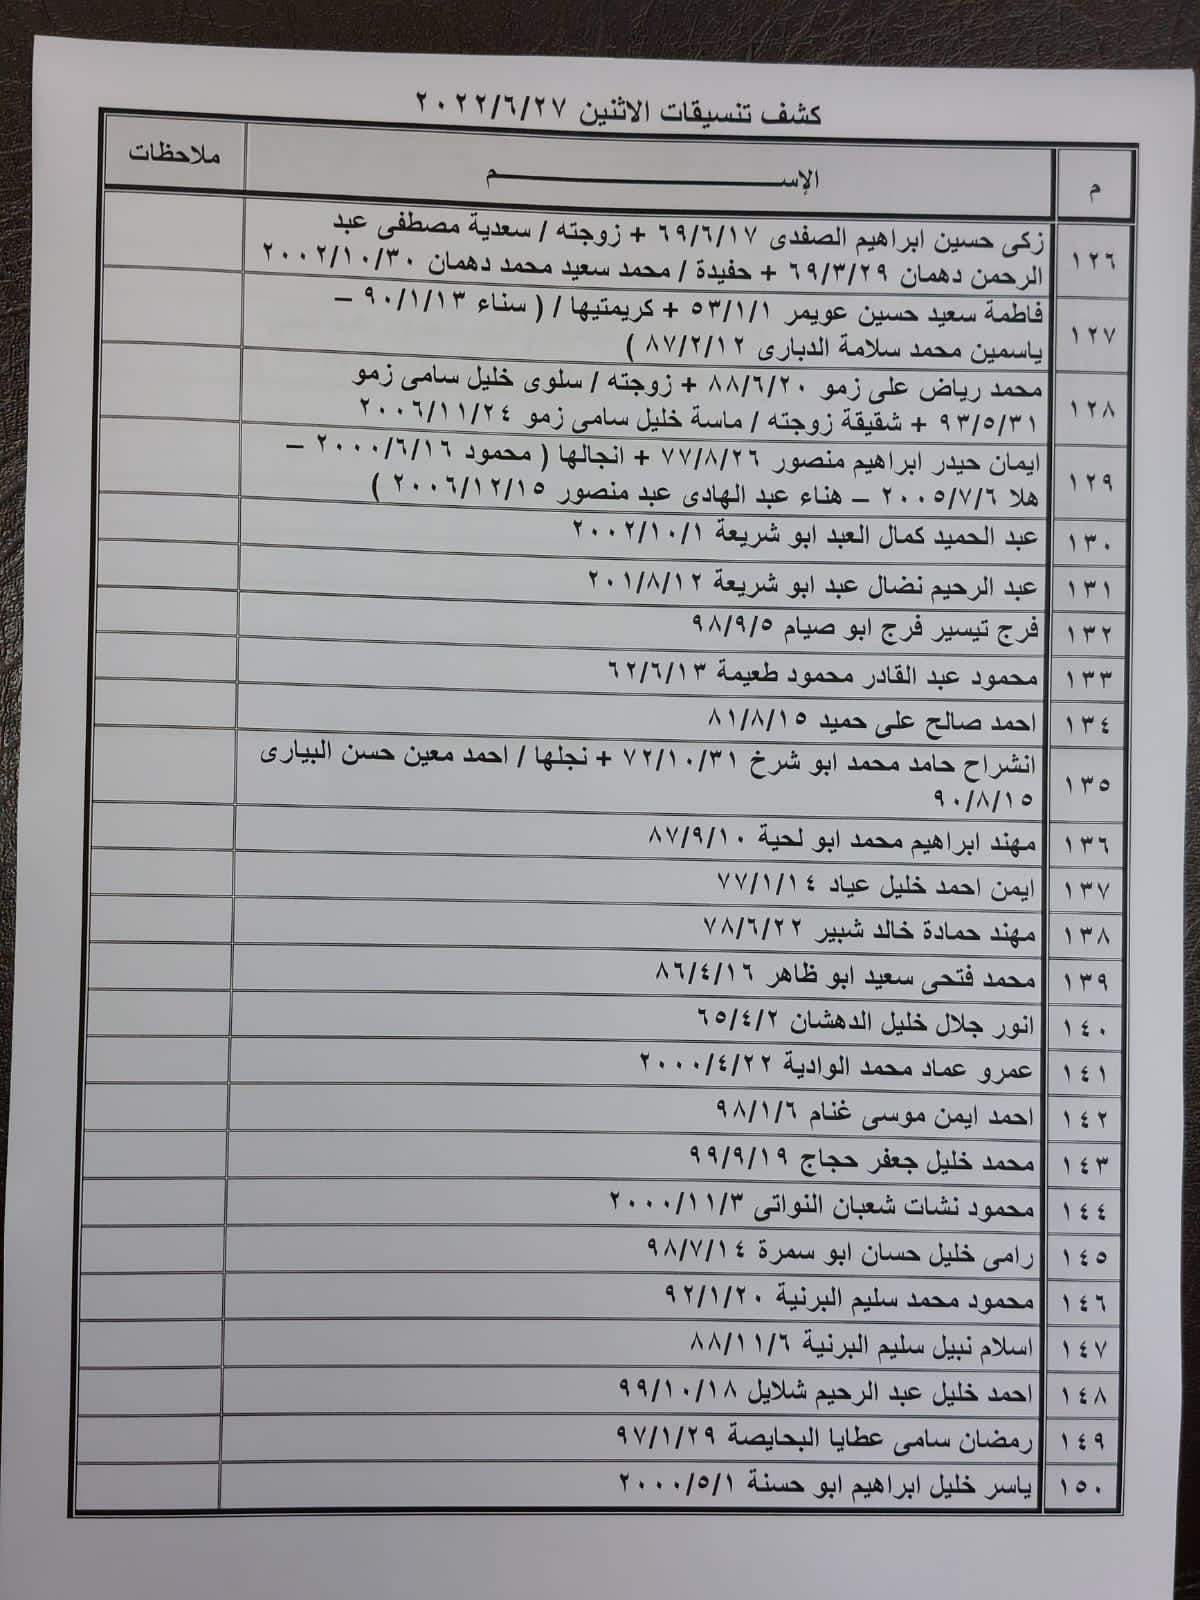 كشف تنسيقات الاثنين ٢٠٢٢/٦/٢٧
م الإســـــــــم ملاحظات
١٢٦ زكى حسين ابراهيم الصفدى ٦٩/٦/١٧ + زوجته / سعدية مصطفى عبد
الرحمن دهمان ٦٩/٣/٢٩ + حفيدة / محمد سعيد محمد دهمان ٢٠٠٢/١٠/٣٠
١٢٧ فاطمة سعيد حسين عويمر ٥٣/١/١ + كريمتيها / ( سناء ٩٠/١/١٣ –
ياسمين محمد سلامة الدبارى ٨٧/٢/١٢ )
١٢٨ محمد رياض على زمو ٨٨/٦/٢٠ + زوجته / سلوى خليل سامى زمو
٩٣/٥/٣١ + شقيقة زوجته / ماسة خليل سامى زمو ٢٠٠٦/١١/٢٤
١٢٩ ايمان حيدر ابراهيم منصور ٧٧/٨/٢٦ + انجالها ( محمود ٢٠٠٠/٦/١٦ –
هلا ٢٠٠٥/٧/٦ – هناء عبد الهادى عبد منصور ٢٠٠٦/١٢/١٥ )
١٣٠ عبد الحميد كمال العبد ابو شريعة ٢٠٠٢/١٠/١
١٣١ عبد الرحيم نضال عبد ابو شريعة ٢٠١/٨/١٢
١٣٢ فرج تيسير فرج ابو صيام ٩٨/٩/٥
١٣٣ محمود عبد القادر محمود طعيمة ٦٢/٦/١٣
١٣٤ احمد صالح على حميد ٨١/٨/١٥
١٣٥ انشراح حامد محمد ابو شرخ ٧٢/١٠/٣١ + نجلها / احمد معين حسن البيارى
٩٠/٨/١٥
١٣٦ مهند ابراهيم محمد ابو لحية ٨٧/٩/١٠
١٣٧ ايمن احمد خليل عياد ٧٧/١/١٤
١٣٨ مهند حمادة خالد شبير ٧٨/٦/٢٢
١٣٩ محمد فتحى سعيد ابو ظاهر ٨٦/٤/١٦
١٤٠ انور جلال خليل الدهشان ٦٥/٤/٢
١٤١ عمرو عماد محمد الوادية ٢٠٠٠/٤/٢٢
١٤٢ احمد ايمن موسى غنام ٩٨/١/٦
١٤٣ محمد خليل جعفر حجاج ٩٩/٩/١٩
١٤٤ محمود نشات شعبان النواتى ٢٠٠٠/١١/٣
١٤٥ رامى خليل حسان ابو سمرة ٩٨/٧/١٤
١٤٦ محمود محمد سليم البرنية ٩٢/١/٢٠
١٤٧ اسلام نبيل سليم البرنية ٨٨/١١/٦
١٤٨ احمد خليل عبد الرحيم شلايل ٩٩/١٠/١٨
١٤٩ رمضان سامى عطايا البحايصة ٩٧/١/٢٩
١٥٠ ياسر خليل ابراهيم ابو حسنة ٢٠٠٠/٥/١